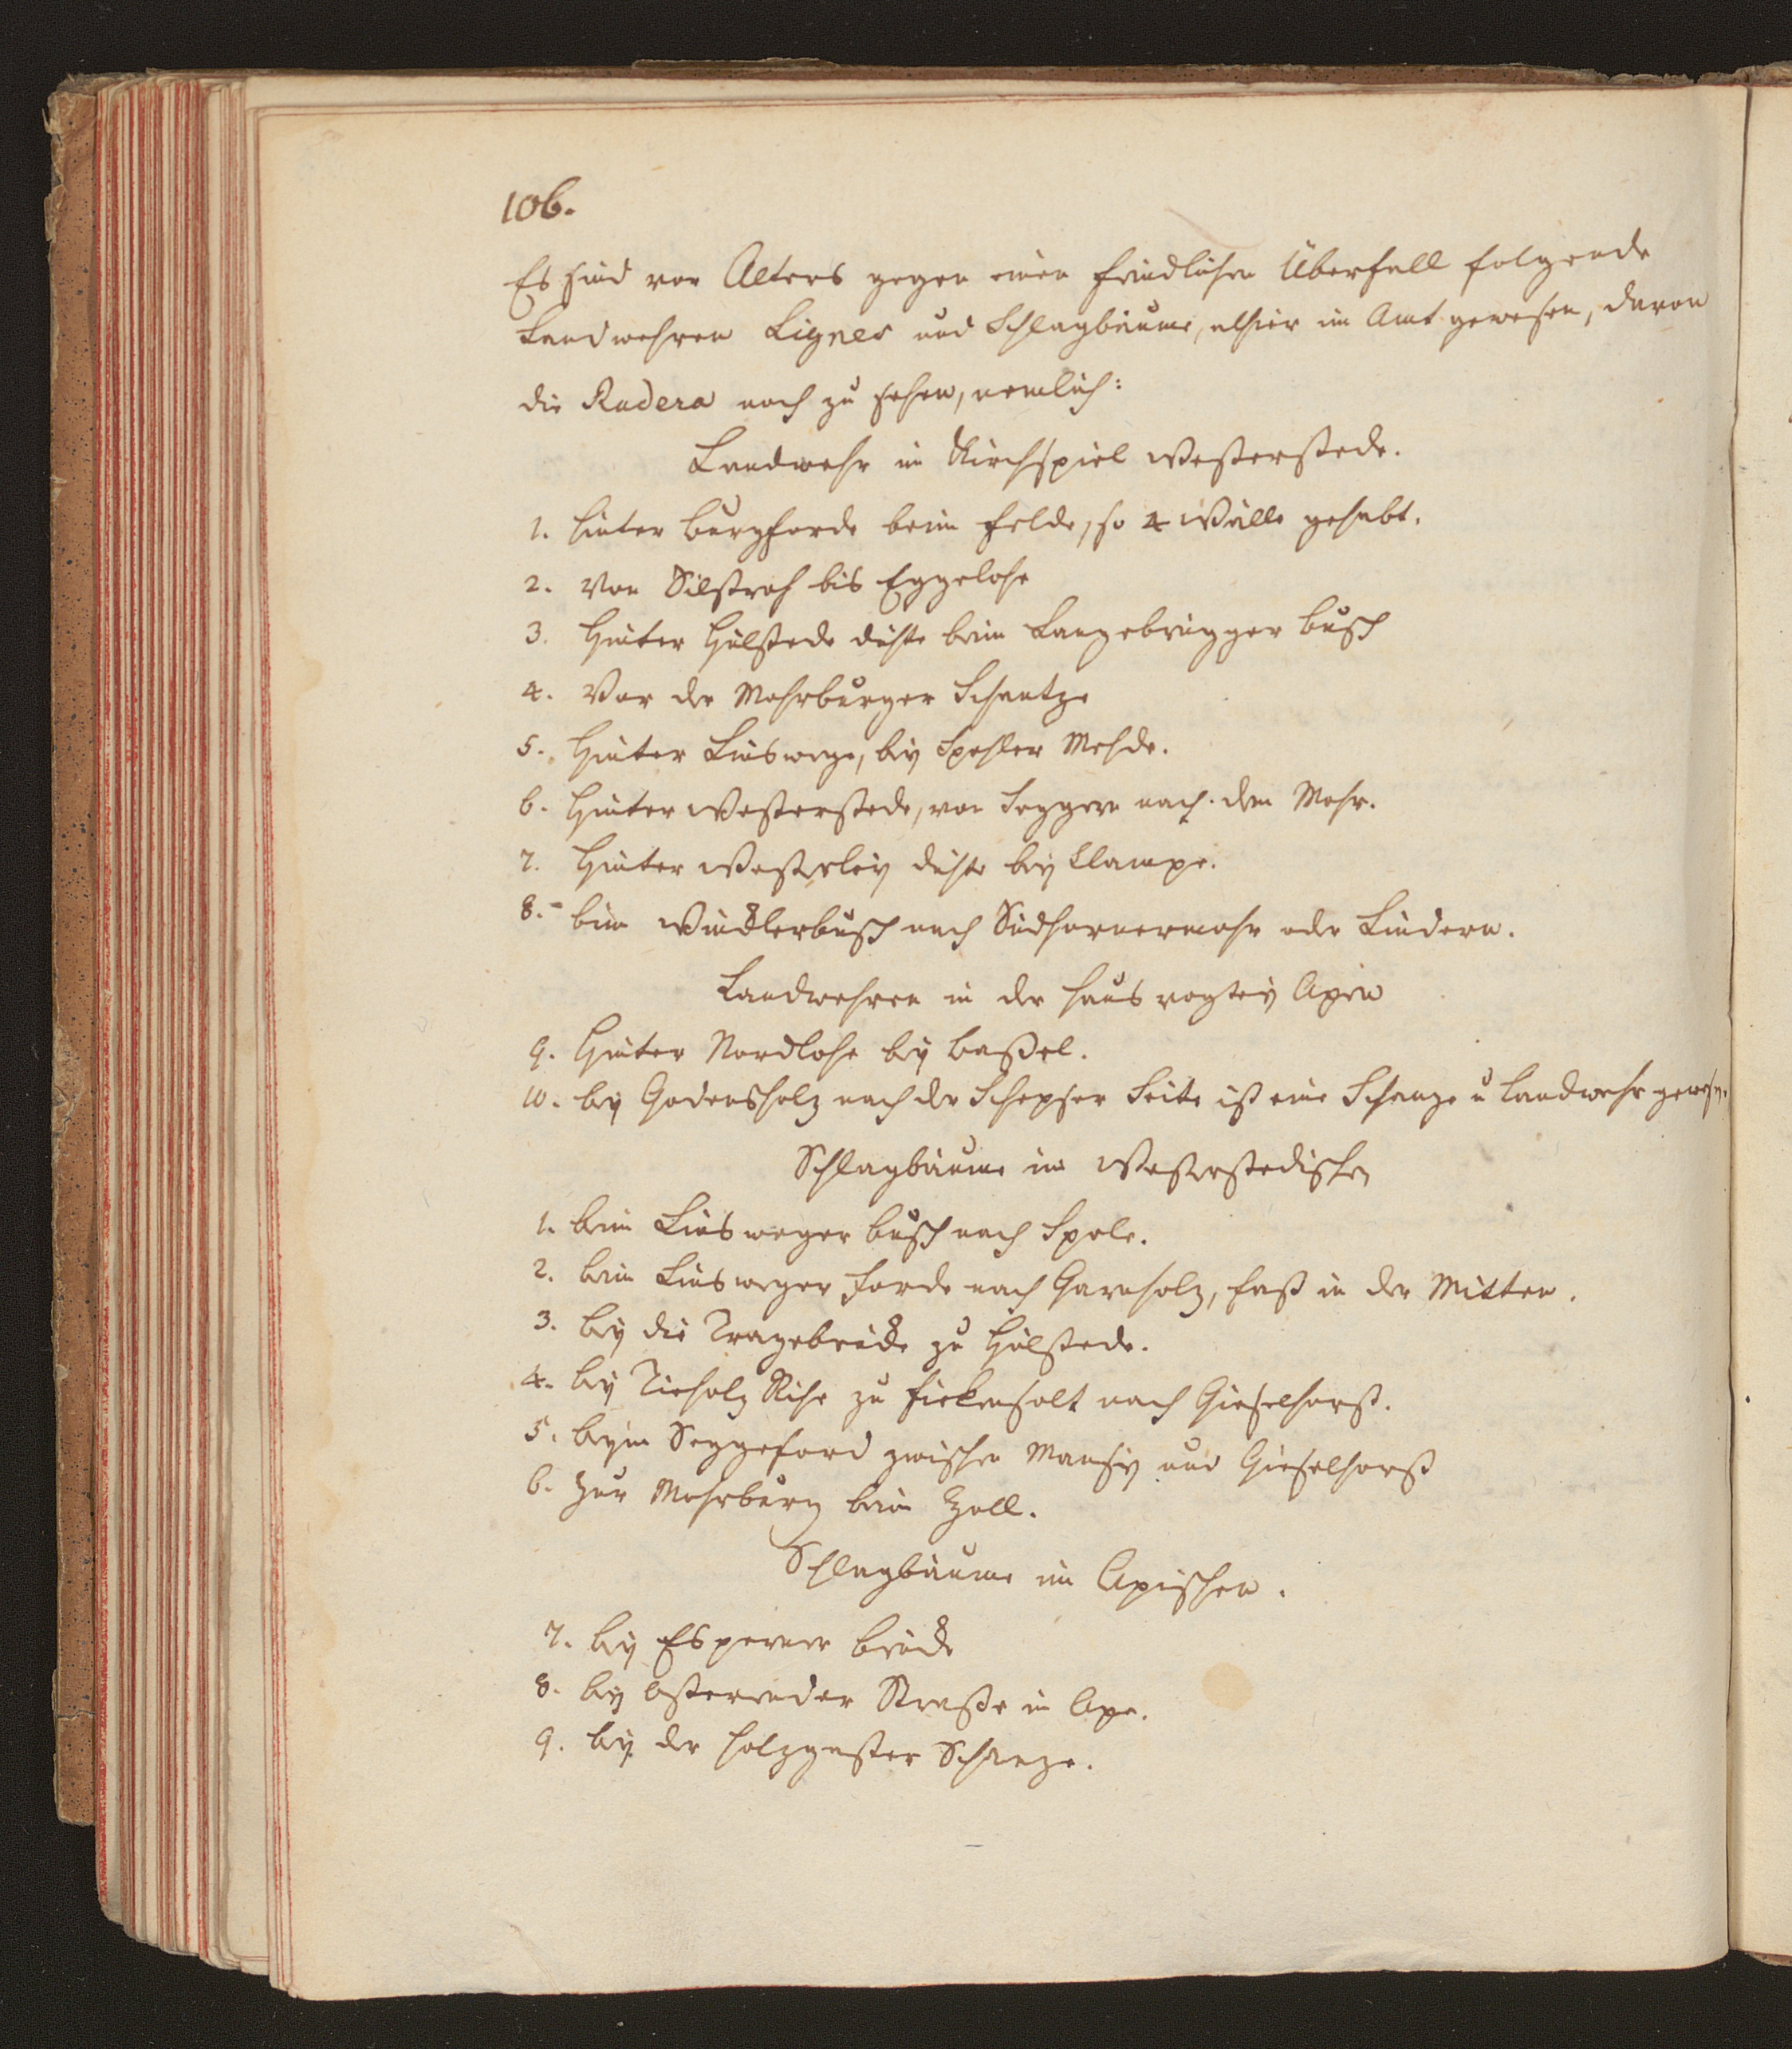 106.
Es sind von Alters gegen einen feindlichen Überfall folgende
Landwehren Lignes und Schlagbäume, alhier im Amt gewesen, davon
die Rudera noch zu sehen, nemlich:
Landwehr im Kirchspiel Westerstede.
1. hinter Burgforde beim Felde, so 4 Wälle gehabt.
2. Von Silstroh bis Eggelohe
3. Hinter Hülstede dichte beim Langebrügger Busch
4. Vor der Mohrburger Schantze
5. Hinter Linswege, bey Spohler Mehde.
6. Hinter Westerstede, von Seggern nach dem Mohr.
7. Hinter Westerloy dichte bey Klampe.
8. beim Windlerbusch nach Südhornermohr oder Lindern.
Landwehren in der Hausvogtey Apen
9. Hinter Nordlohe bey Baßel.
10. bey Godensholz nach der Schepser Seite ist eine Schanze u Landwehr gewesen.
Schlagbäume im Westerstedischen
1. beim Linsweger Busch nach Spole.
2. beim Linsweger Forde nach Garnholz, fast in der Mitten.
3. bey die Tragebrücke zu Hülstede.
4. bey Tieholz Rihe zu Fickensolt nach Gieselhorst.
5. beym Seggeford zwischen Mansiy und Gieselhorst
6. Zur Mohrburg beim Zoll.
Schlagbäume im Apischen.
7. bey Esperner Brücke
8. bey Osterender Straße in Ape.
9. bey der Holzgaster Schanze.